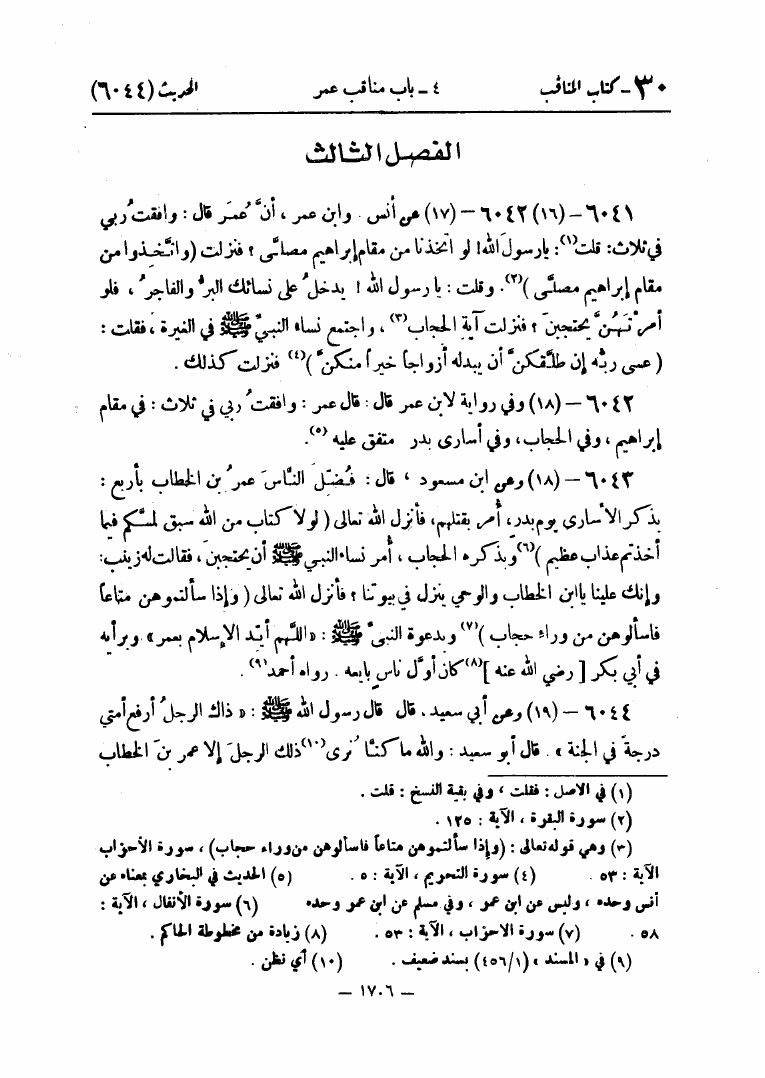 ٣٠ـ كتاب المناقب ٤ ـ باب مناقب عمر الحديث (٦٠٤٤)
الفصل الثالث
٦٠٤١ – (١٦) ٦٠٤٢ – (١٧) عن أنس وابن عمر ، أنَّ عُمَرَ قال : وافقتُ ربي
في ثلاث: قلت(١): يا رسولَ الله! لو اتخذنا من مقام إبراهيم مصلَّى ؟ فنزلت (واتَّخذوا من
مقام إبراهيم مصلَّى )(٢). وقلت : يا رسول الله ! يدخلُ على نسائك البرُّ والفاجرُ ، فلو
أمرْتَهُنَّ يحتجبنَ ؟ فنزلت آية الحجاب(٣) ، واجتمع نساء النبيِّ ﷺ في الغيرة ، فقلت :
( عسى ربُّه إن طلَّقكنَّ أن يبدله أزواجاً خيراً منكنَّ )(٤) فنزلت كذلك .
٦٠٤٢ – (١٨) وفي رواية لابن عمر قال : قال عمر : وافقتُ ربي في ثلاث : في مقام
إبراهيم ، وفي الحجاب، وفي أسارى بدر متفق عليه (٥).
٦٠٤٣ – (١٨) وعن ابن مسعود ، قال : فُضِّلَ النَّاسَ عمرُ بن الخطاب بأربع :
بذكر الأسارى يوم بدر، أمر بقتلهم، فأنزل الله تعالى ( لولا كتاب من الله سبق لمسَّكم فيما
أخذتم عذاب عظيم )(٦) وبذكره الحجاب ، أمر نساء النبي ﷺ أن يحتجبنَ ، فقالت له زينب:
وإنك علينا يا ابن الخطاب والوحي ينزل في بيوتنا ؟ فأنزل الله تعالى ( وإذا سألتموهن متاعاً
فاسألوهن من وراء حجاب )(٧) وبدعوة النبيِّ ﷺ : «اللَّهم أيِّد الإسلام بعمر» وبرأيه
في أبي بكر [ رضي الله عنه ](٨) كان أوَّل ناس بايعه . رواه أحمد(٩) .
٦٠٤٤ – (١٩) وعن أبي سعيد، قال قال رسول الله ﷺ : « ذاك الرجلُ أرفع أمتي
درجةً في الجنة » . قال أبو سعيد : والله ما كنَّا نُرى(١٠) ذلك الرجلَ إلا عمر بنَ الخطاب
(١) في الاصل : فقلت ، وفي بقية النسخ : قلت .
(٢) سورة البقرة ، الآية : ١٢٥ .
(٣) وهي قوله تعالى : (وإذا سألتموهن متاعاً فاسألوهن من وراء حجاب) ، سورة الأحزاب
الآية : ٥٣ . (٤) سورة التحريم ، الآية : ٥ . (٥) الحديث في البخاري بمعناه عن
أنس وحده ، وليس عن ابن عمر ، وفي مسلم عن ابن عمر وحده (٦) سورة الأنفال ، الآية :
٥٨ . (٧) سورة الاحزاب ، الآية : ٥٣ . (٨) زيادة من مخطوطة الحاكم .
(٩) في « المسند » (٤٥٦/١) بسند ضعيف . (١٠) أي نظن .
– ١٧٠٦ –